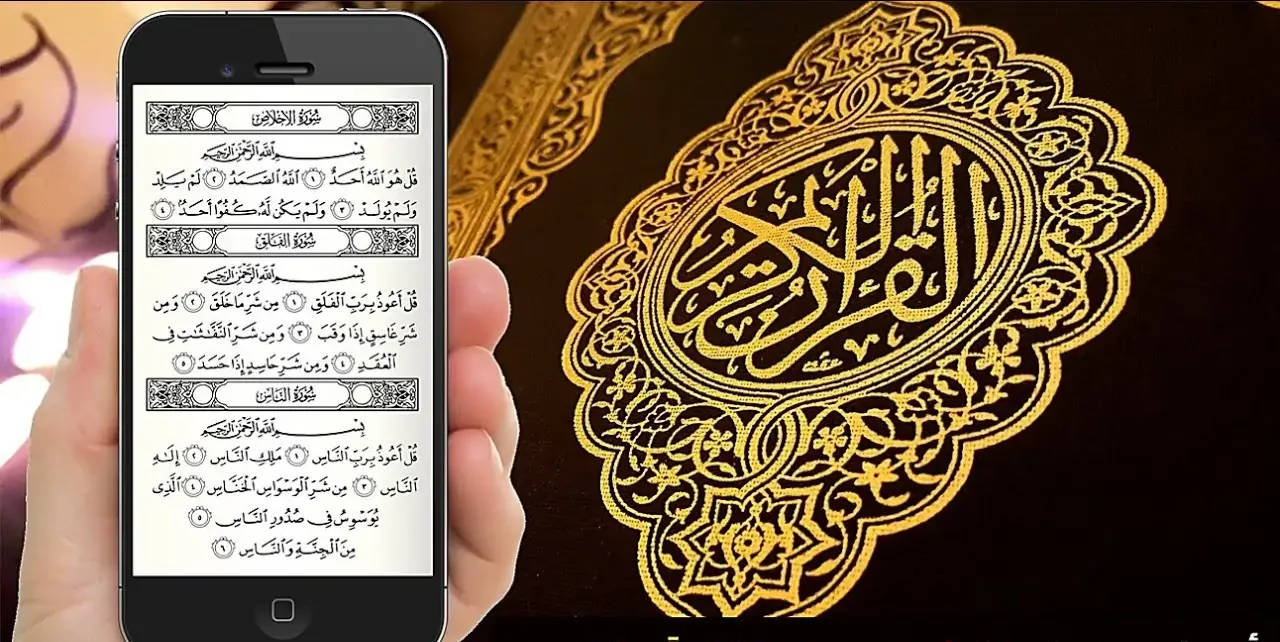 سُورَةُ الإِخْلَاصِ
بِسْمِ ٱللَّهِ ٱلرَّحْمَٰنِ ٱلرَّحِيمِ
قُلْ هُوَ ٱللَّهُ أَحَدٌ ١ ٱللَّهُ ٱلصَّمَدُ ٢ لَمْ يَلِدْ
وَلَمْ يُولَدْ ٣ وَلَمْ يَكُن لَّهُۥ كُفُوًا أَحَدٌۢ ٤
سُورَةُ الفَلَقِ
بِسْمِ ٱللَّهِ ٱلرَّحْمَٰنِ ٱلرَّحِيمِ
قُلْ أَعُوذُ بِرَبِّ ٱلْفَلَقِ ١ مِن شَرِّ مَا خَلَقَ ٢ وَمِن
شَرِّ غَاسِقٍ إِذَا وَقَبَ ٣ وَمِن شَرِّ ٱلنَّفَّٰثَٰتِ فِى
ٱلْعُقَدِ ٤ وَمِن شَرِّ حَاسِدٍ إِذَا حَسَدَ ٥
سُورَةُ النَّاسِ
بِسْمِ ٱللَّهِ ٱلرَّحْمَٰنِ ٱلرَّحِيمِ
قُلْ أَعُوذُ بِرَبِّ ٱلنَّاسِ ١ مَلِكِ ٱلنَّاسِ ٢ إِلَٰهِ
ٱلنَّاسِ ٣ مِن شَرِّ ٱلْوَسْوَاسِ ٱلْخَنَّاسِ ٤ ٱلَّذِى
يُوَسْوِسُ فِى صُدُورِ ٱلنَّاسِ ٥
مِنَ ٱلْجِنَّةِ وَٱلنَّاسِ ٦
القرآن الكريم